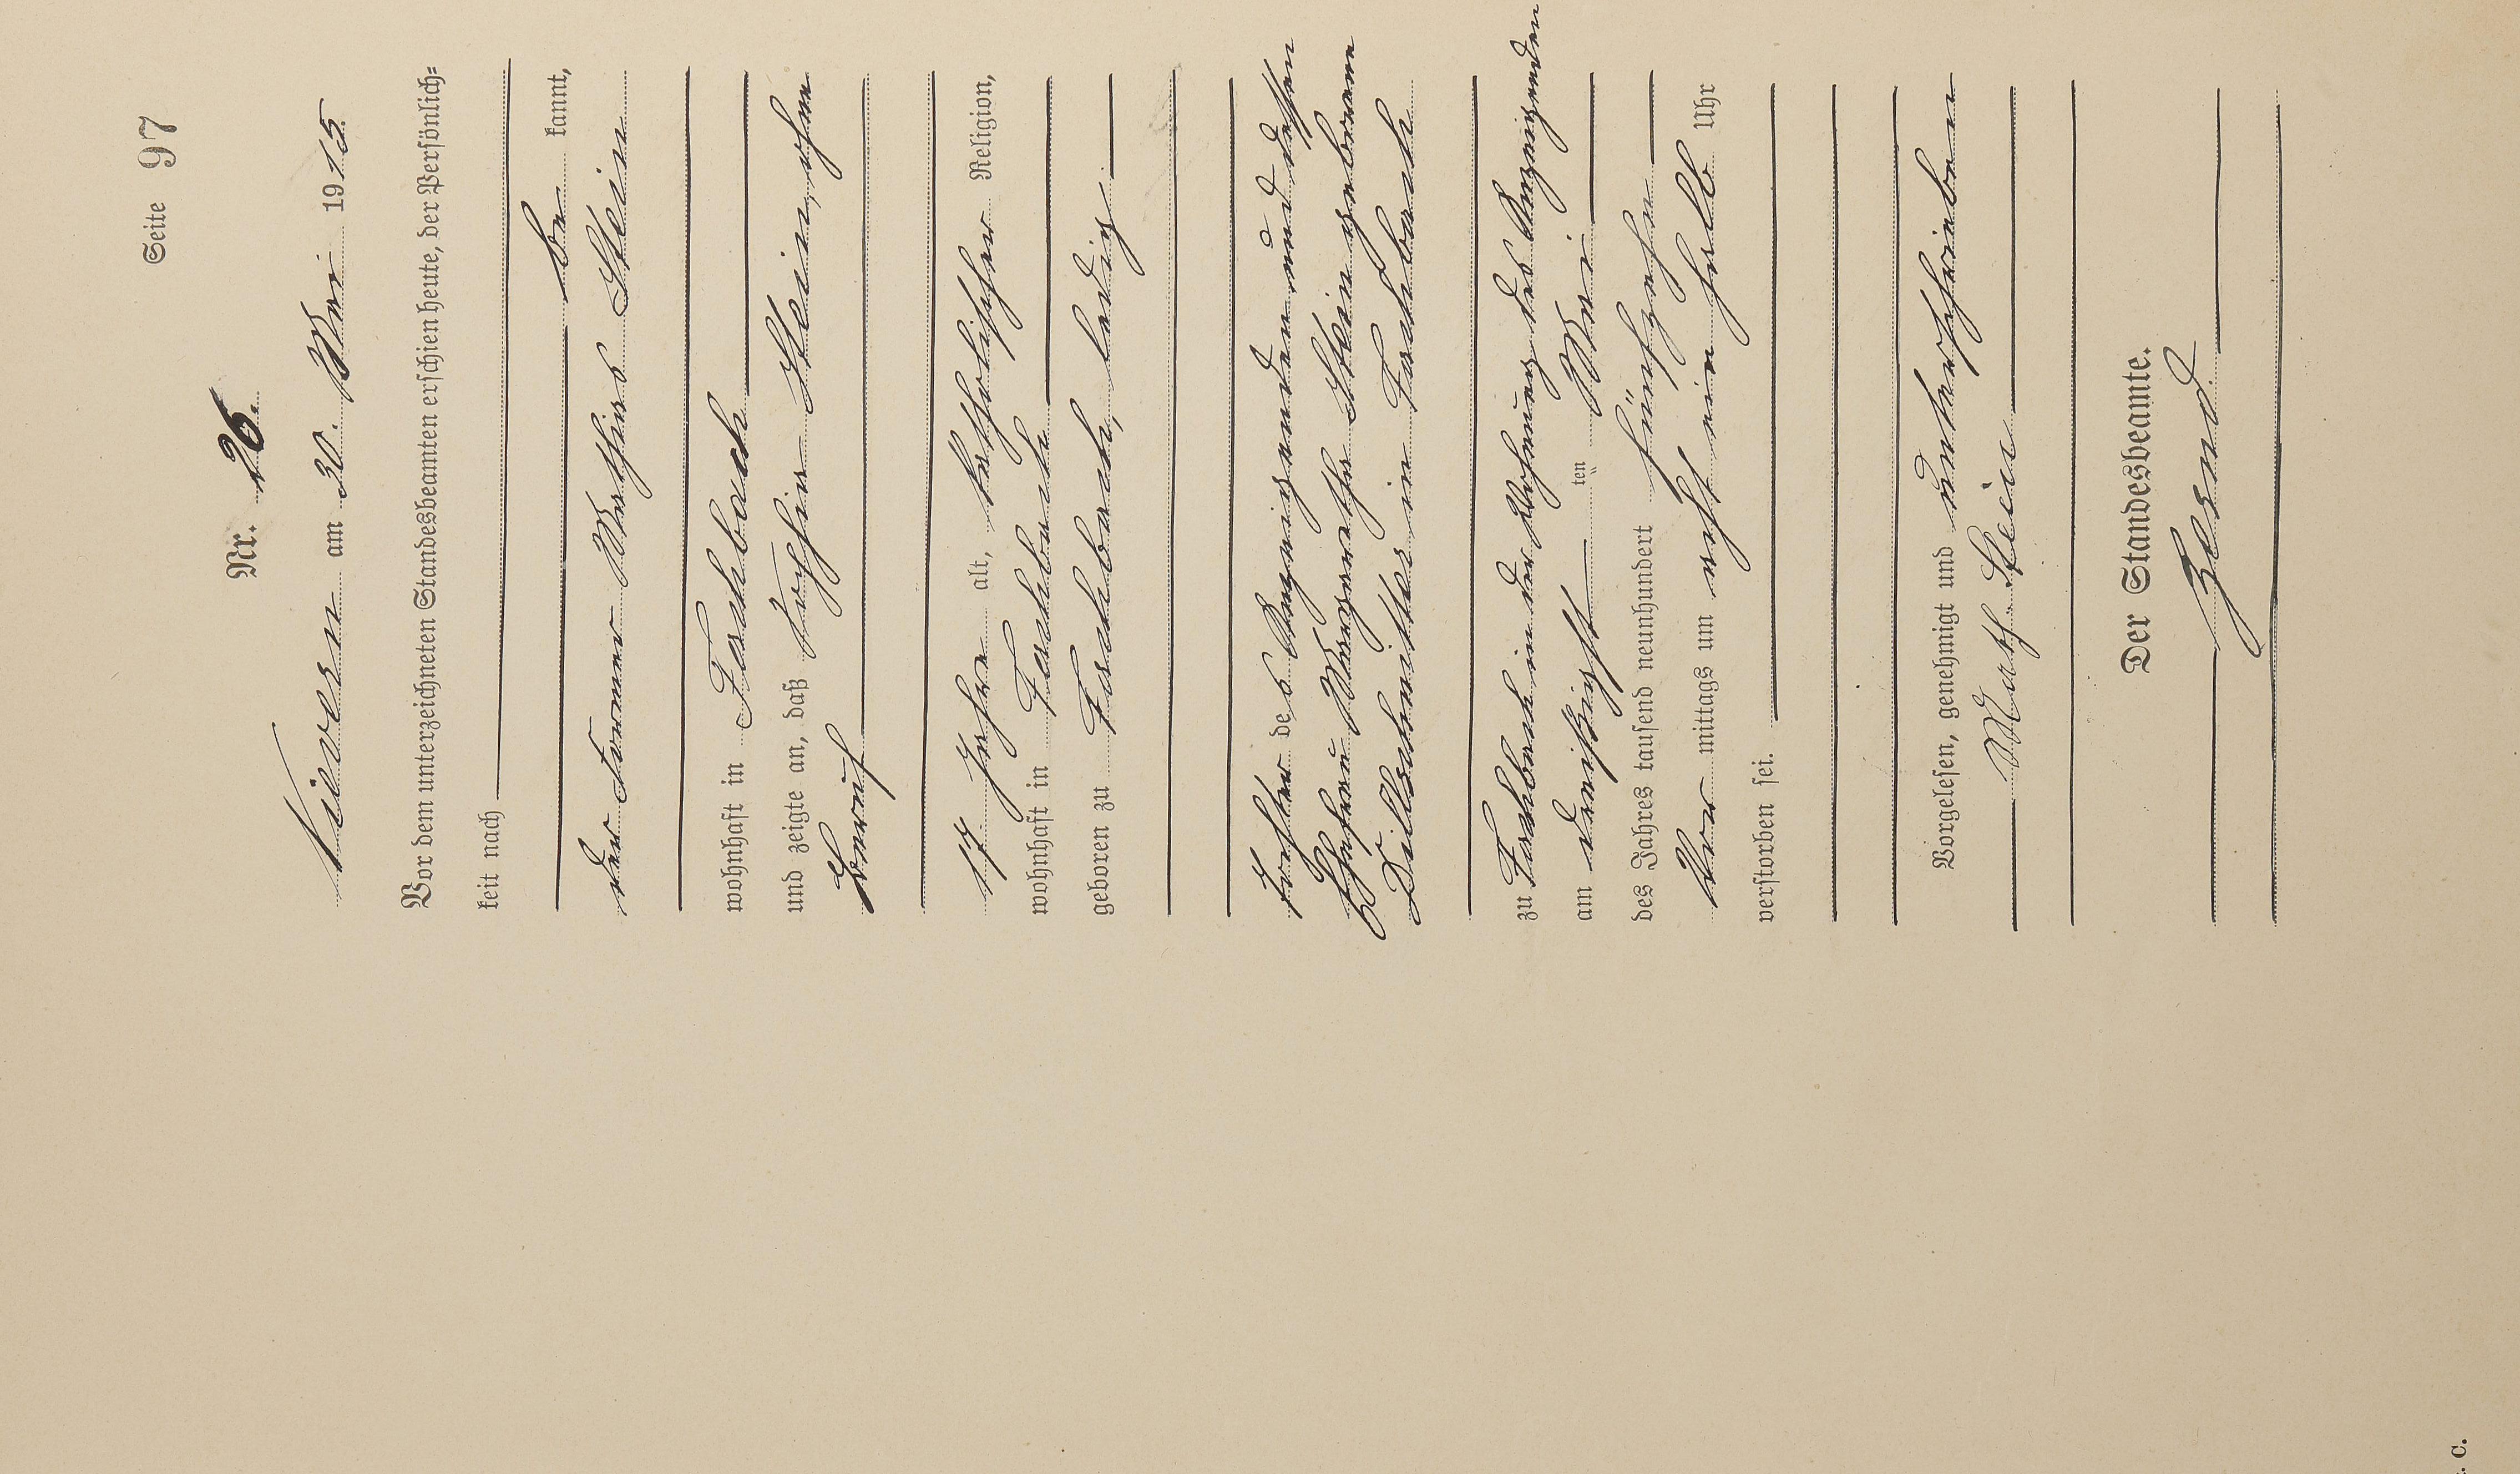 Seite 97
Nr. 26.
Nievern am 30. Mai 1915.
Vor dem unterzeichneten Standesbeamten erschien heute, der Persönlich-
keit nach
be kannt,
der Former Mathias Stein
wohnhaft in Fachbach
und zeigte an, daß Stein, ohne
Beruf
17 Jahre alt, katholischer Religion,
wohnhaft in Fachbach
geboren zu Fachbach, ledig
Tochter des Anzeigenden und dessen
Ehefrau Margaretha Stein geborene
Dillschnitter in Fachbach
zu Fachbach in der Wohnung des Anzeigenden
am dreißigst ten Mai
des Jahres tausend neunhundert fünfzehn
Vor mittags um acht ein halb Uhr
verstorben sei.
Vorgelesen, genehmigt und unterschrieben
Math. Stein
Der Standesbeamte.
C.